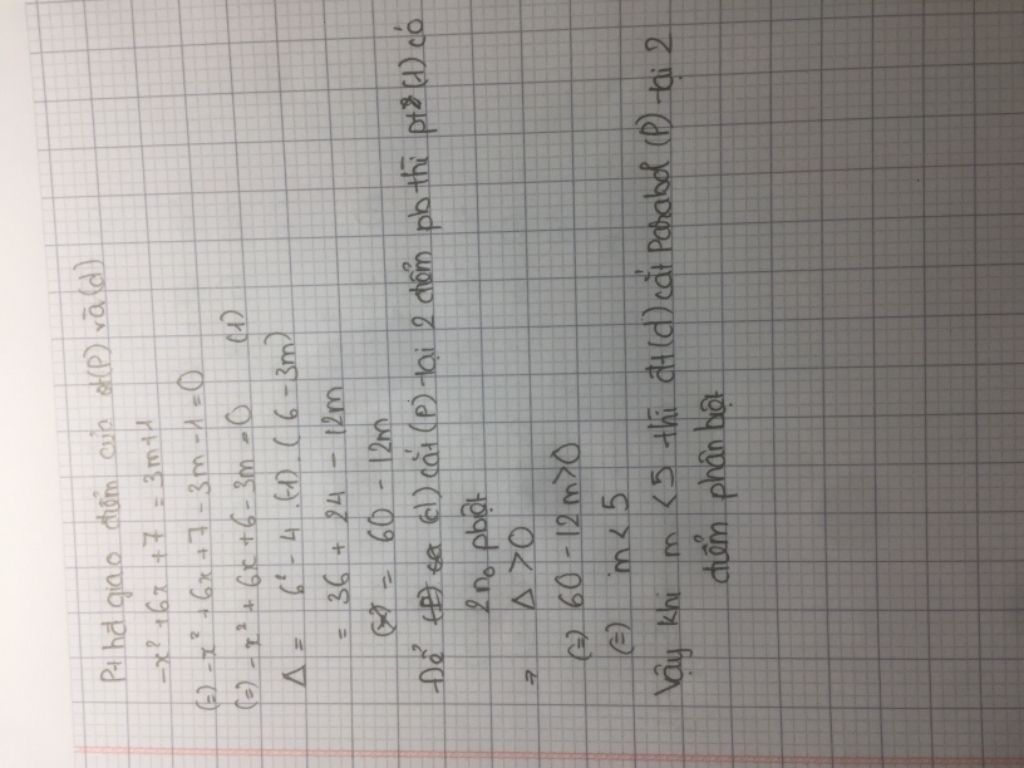 Pt hđ giao điểm của (P) và (d)
-x² + 6x + 7 = 3m+1
(=) -x² + 6x + 7 - 3m - 1 = 0
(=) -x² + 6x + 6 - 3m = 0 (1)
Δ = 6² - 4.(-1).(6 - 3m)
= 36 + 24 - 12m
= 60 - 12m
Để (d) cắt (P) tại 2 điểm pb thì pt (1) có
2 no pbiệt
⇒ Δ > 0
(=) 60 - 12m > 0
(=) m < 5
Vậy khi m < 5 thì đt (d) cắt Parabol (P) tại 2
điểm phân biệt